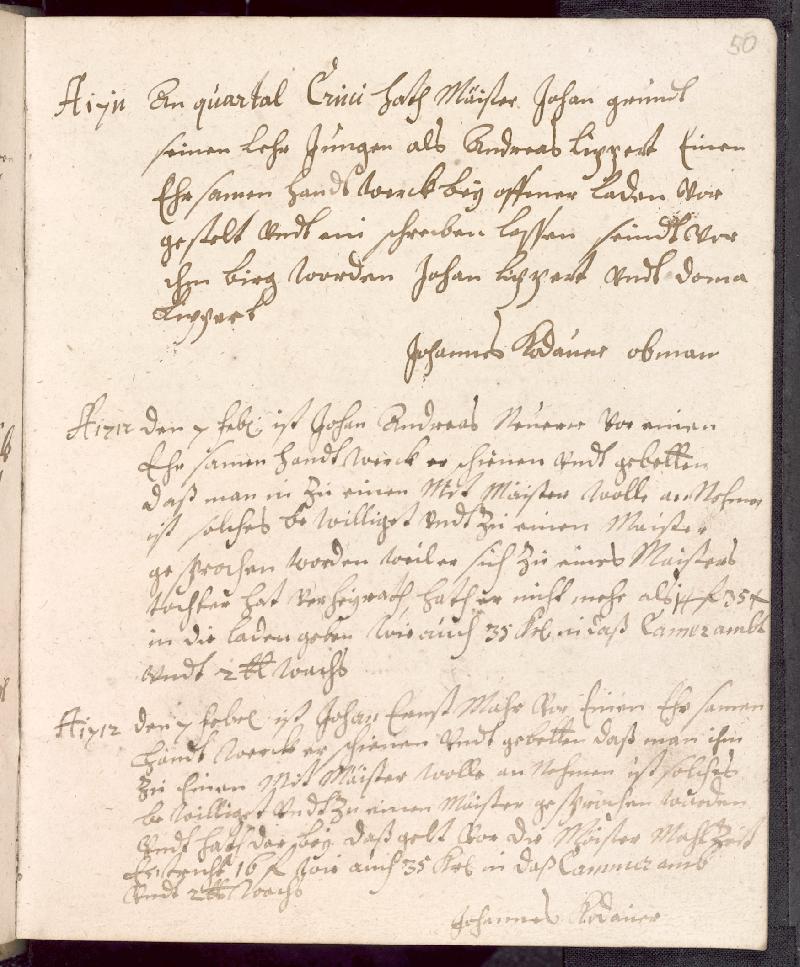 50
A 1711 An quartal Cruci hath Mäister Johan grundt
seinen Lehr Jungen als Andreas Lippert Einen
Ehrsamen handtwerck beÿ offener Laden vor
gestelt vndt ein schreiben lassen seindt vor
ihm birg worden Johan Lippert vndt doma
Lippert
Johannes Kodauer obman
A 1712 den 7 febl ist Johan Andreas Neuerer vor einen
Ehr samen handtwerck er schienen vndt gebetten
daß man in zu einen Mit Mäister wolle an Nehmen
ist solches be williget vndt zu einen Maister
gesprochen worden weil er sich zu eines Maisters
tochter hat verheÿrath hath er nicht mehr als 14 f 35 x
in die laden geben wie auch 35 Krl in daß Camer ambt
vndt 2 tt wachs
A 1712 den 7 febel ist Johan Ernst Mahr vor Einen Ehr samen
handt werck er schienen vndt gebetten daß man ihm
zu Einen Mit Mäister wolle an Nehmen ist solches
be williget vndt zu einen Mäister gesprochen wurden
vndt hath dar beÿ daß gelt vor die Mäister Mahlzeit
Erstricht 16 f wie auch 35 Krl in daß Cammer amb
vndt 2 tt wachs
Johannes Kodauer